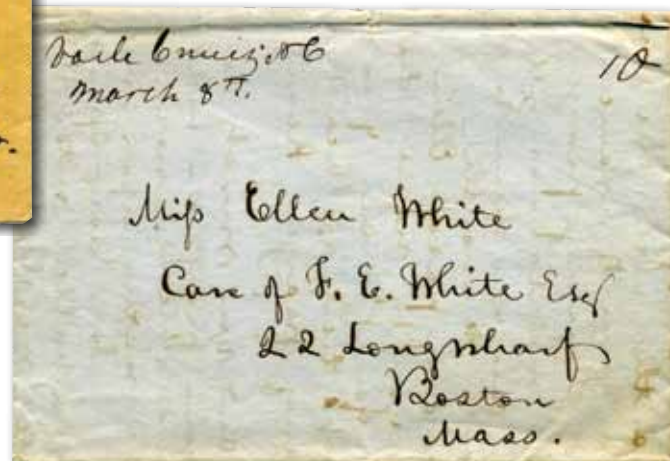 March 8th.
10
Miss Ellen White
Care of F. E. White Esq
22 Long wharf
Boston
Mass.